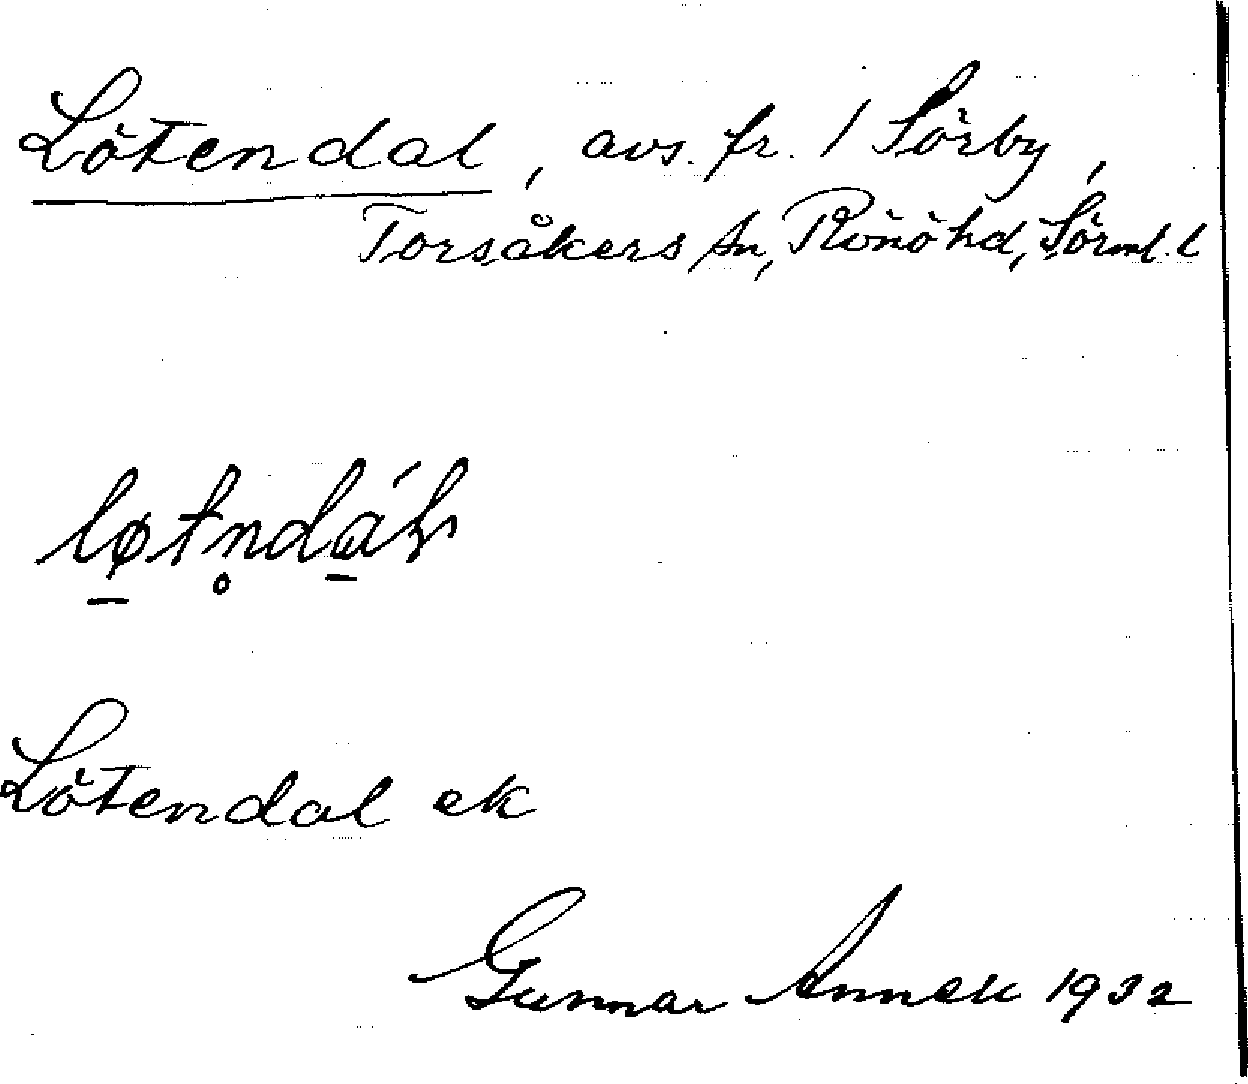 Lötendal, avs. fr. 1 Sörby,
Torsåkers sn, Rönö hd, Sörml. l
løtn̥dál
Lötendal ek
Gunnar Annell 1932